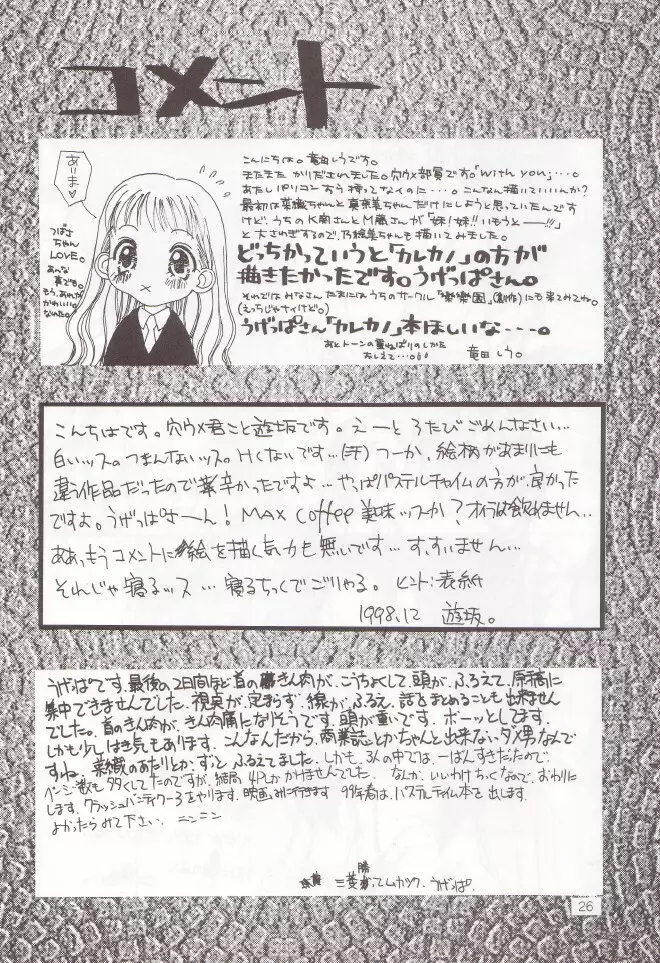 コメント
ありま♡
つばさ
ちゃん
LOVE。
あんな
妻でも。
もう、あれが
かわいい
なれた。
こんにちは。竜田しうです。
またまたかりだされました。穴ウメ部員です。「with you」・・・。
あたしパソコンすら持ってないのに・・・。こんなん描いていいんか?
最初は菜織ちゃんと真奈美ちゃんだけにしようと思っていたんです
けど、うちのK南さんとM蔵さんが「妹!妹!!いもうとー!!!」
と大さわぎするので、乃絵美ちゃんも描いてみました。
どっちかっていうと「カレカノ」の方が
描きたかったです。うげっぱさん。
それではみなさんたまにはうちのサークル「楽園」(創作)にも来てみてね。
(えっちじゃナイけど。)
うげっぱさん「カレカノ」本ほしいな・・・。
あとトーンの重ねばりのしかた
おしえて・・・。
竜田しう。
こんちはです。穴ウメ君こと遊坂です。えーと ろたびごめんなさい…
白いッス。つまんないッス。Hくないです…(汗) つーか、絵柄があまりにも
違う作品だったので辛かったですよ…やっぱパステルチャイムの方が良かった
ですよ。うげっぱさーん! MAX coffee 美味ッスか? オイラは飲めません…
ああっもうコメントに絵を描く気力も無いです…す、すいません…
そんじゃ寝るッス…寝るちっくでごりゃる。 ヒント:表紙
1998.12 遊坂。
うげっぱです。最後の2日間ほど首のきん肉が、こうちょくして、頭が、ふるえて、原稿に
集中できませんでした。視点が、定まらず、線が、ふるえ、話をまとめることも出来ません
でした。首のきん肉が、きん肉痛になりそうです。頭が重いです。ボーッとしてます。
しかも少しはき気もあります。こんなんだから、商業誌とかちゃんと出来ない、ダメ男なんで
すね。菜織のあたりとか、ずっと、ふるえてました。しかも、3人の中では、一ばんすきだたので、
ページ数も多くしてたのですが、結局、4Pしかかけませんでした。なんか、いいわけちっくなので、おわりに
します。クラッシュバンディクー3をやります。映画みに行きます。99年春は、パステルチイム本を出します。
よかったらみて下さい。ニンニン
三菱 勝ってムカツク。うげっぱ。
26